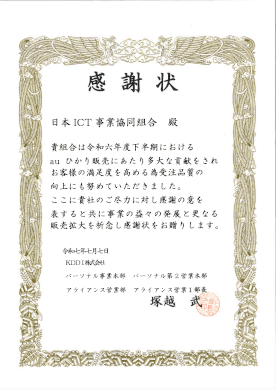 感謝状
日本ICT事業協同組合　殿
貴組合は令和六年度下半期における
au ひかり販売にあたり多大な貢献をされ
お客様の満足度を高める為受注品質の
向上にも努めていただきました。
ここに貴社のご尽力に対し感謝の意を
表すると共に事業の益々の発展と更なる
販売拡大を祈念し感謝状をお贈りします。
令和七年七月七日
KDDI株式会社
パーソナル事業本部　パーソナル第2営業本部
アライアンス営業部　アライアンス営業1部長
塚越　武